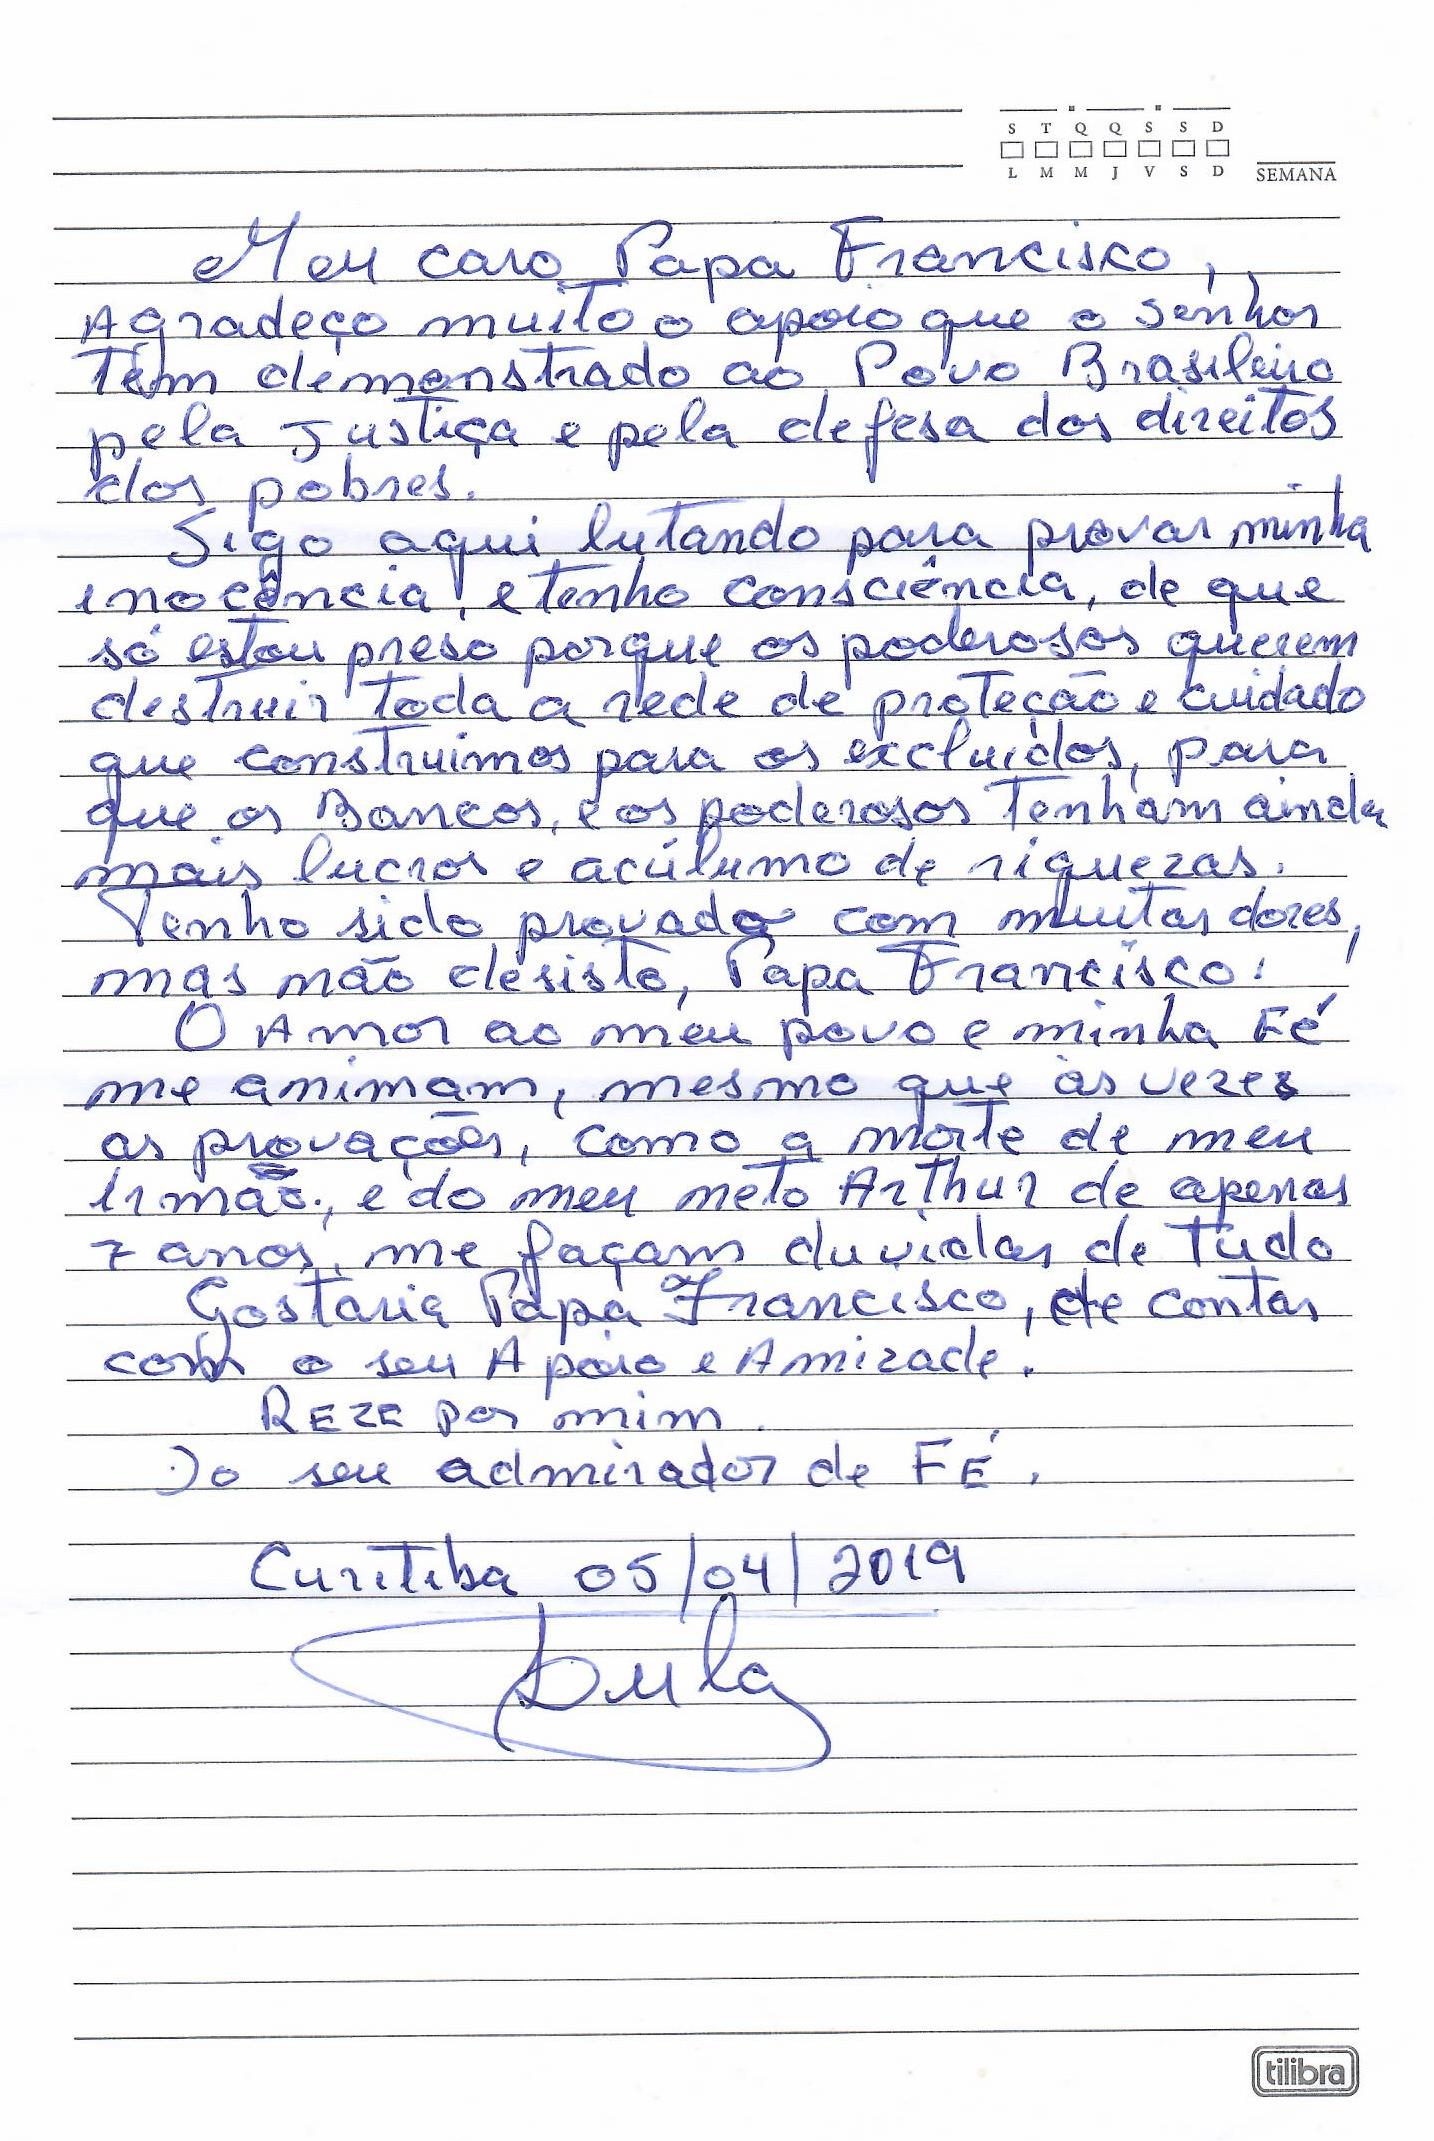 S T Q Q S S D
L M M J V S D
SEMANA
Meu caro Papa Francisco,
Agradeço muito o apoio que o senhor
têm demonstrado ao Povo Brasileiro
pela Justiça e pela defesa dos direitos
dos pobres.
Sigo aqui lutando para provar minha
inocência, e tenho consciência, de que
só estou preso porque os poderosos querem
destruir toda a rede de proteção e cuidado
que construimos para os excluídos, para
que os Bancos, e os poderosos tenham ainda
mais lucros e acúlumo de riquezas.
Tenho sido provado com muitas dores,
mas não desisto, Papa Francisco!
O Amor ao meu povo e minha Fé
me animam, mesmo que às vezes
as provações, como a morte de meu
irmão, e do meu neto Arthur de apenas
7 anos, me façam duvidar de tudo
Gostaria Papa Francisco, de contar
com o seu Apoio e Amizade.
REZE por mim.
Do seu admirador de FÉ.
Curitiba 05/04/2019
Lula
tilibra